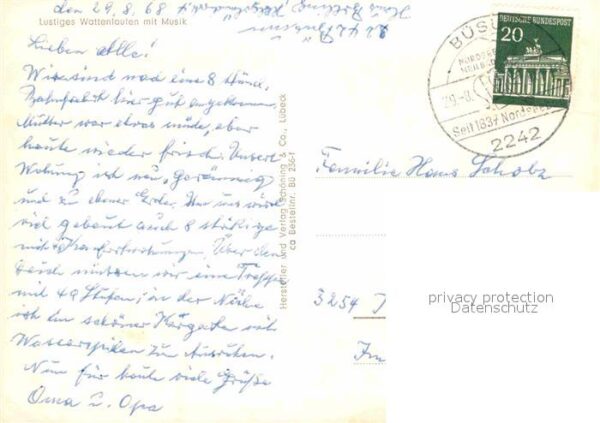 den 29.8.68
Lustiges Wattenlaufen mit Musik
2242 Büsum
Lieben alle!
Wir sind nach 8 stünd.
Bahnfahrt hier gut angekommen.
Mutter war etwas müde, aber
heute wieder frisch. Unsere
Wohnung ist neu, geräumig
und zu ebener Erde. Um uns wird
viel gebaut auch 8 stöckige
mit Über den
Deich müssen wir eine Treppe
mit 49 Stufen, in der Nähe
ist ein schöner mit
Wasserspielen zum Ausruhen.
Nun für heute viele Grüße
Oma u. Opa
Hersteller und Verlag Schöning & Co., Lübeck
Bestellnr. Bü 236-1
DEUTSCHE BUNDESPOST
20
BÜSUM
29.-8.
Seit 1837 Nordsee
2242
Familie Hans Scholz
3254
Im
privacy protection
Datenschutz